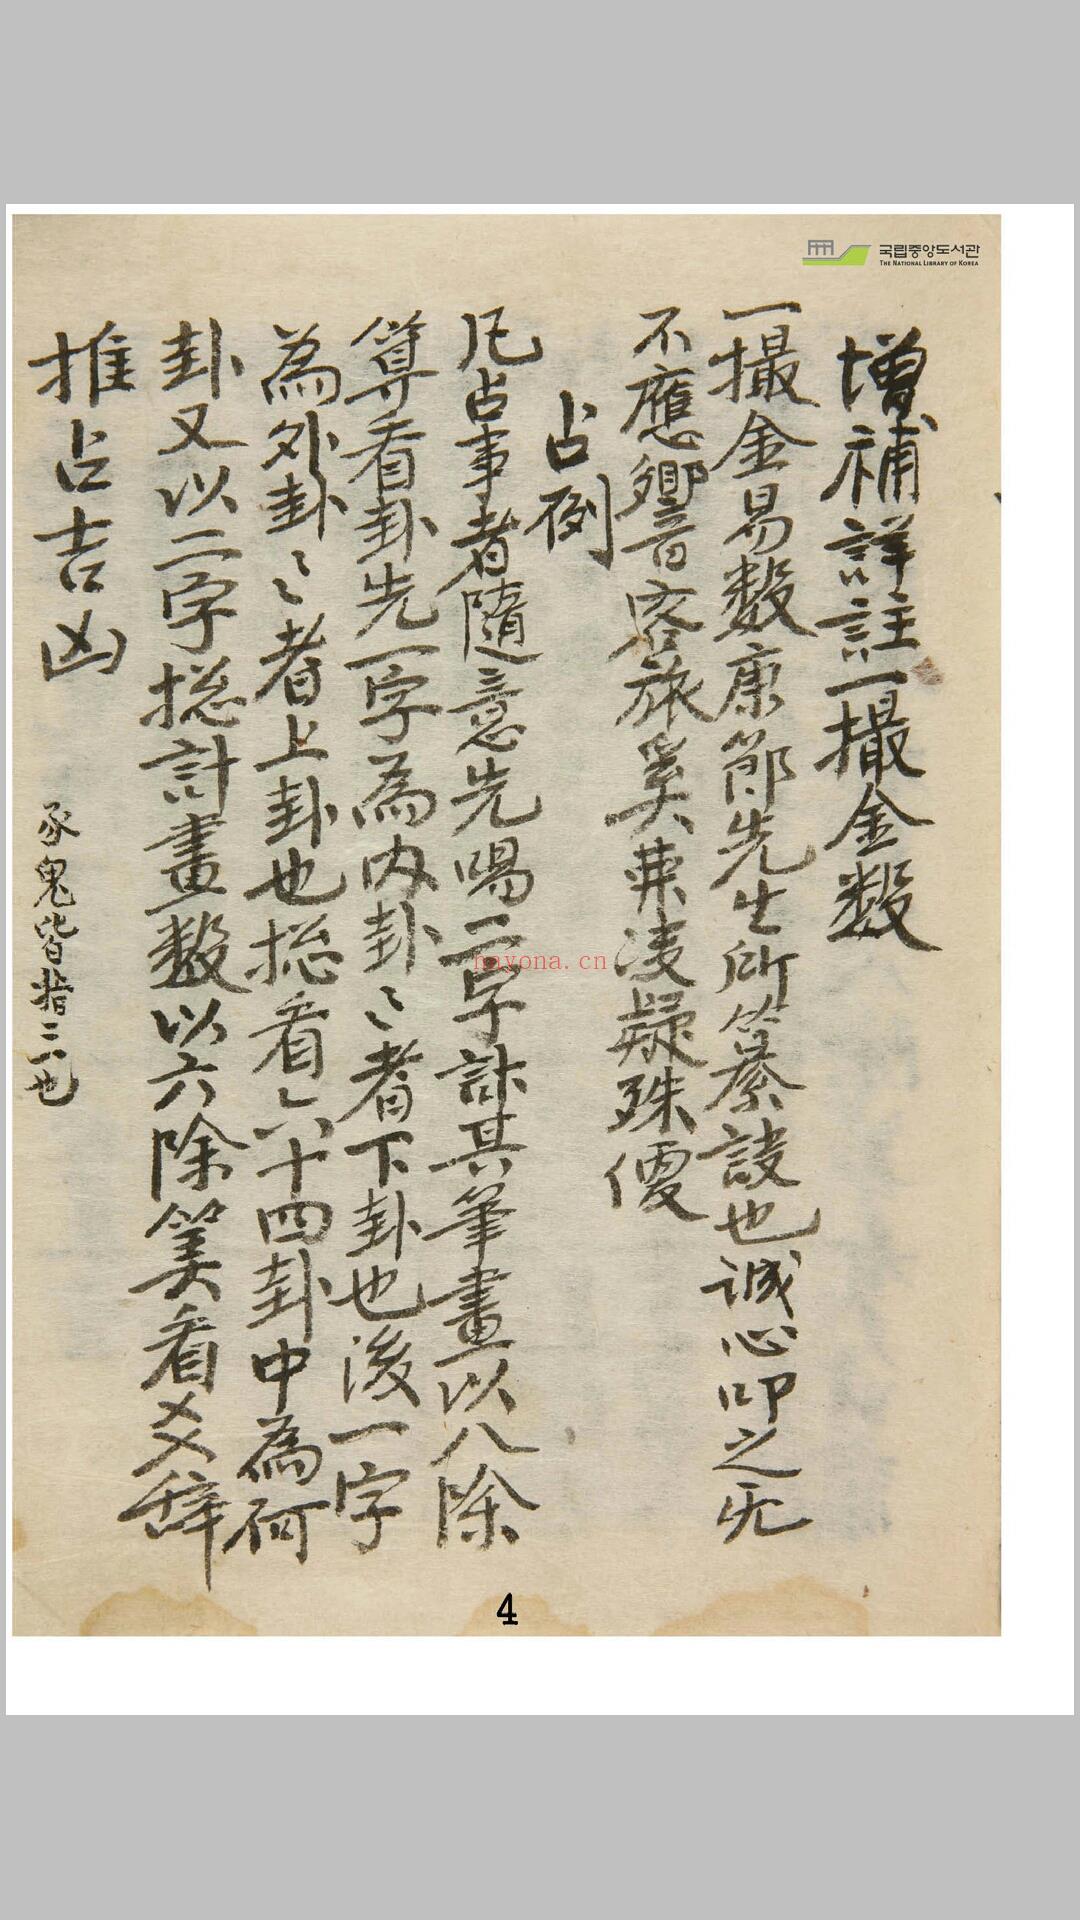 국립중앙도서관
THE NATIONAL LIBRARY OF KOREA
增補詳註一撮金数
一撮金易数康節先生所纂設也誠心叩之无
不應響客旅奚弗決疑殊便
占例
凡占事者隨意先喝二字計其筆畫以八除
算看卦先一字為內卦〻者下卦也後一字
為外卦〻者上卦也揔看六十四卦中為何
卦又以二字揔計畫數以六除筭看爻辞
推占吉凶
豕鬼皆指二也
hayona.cn
4